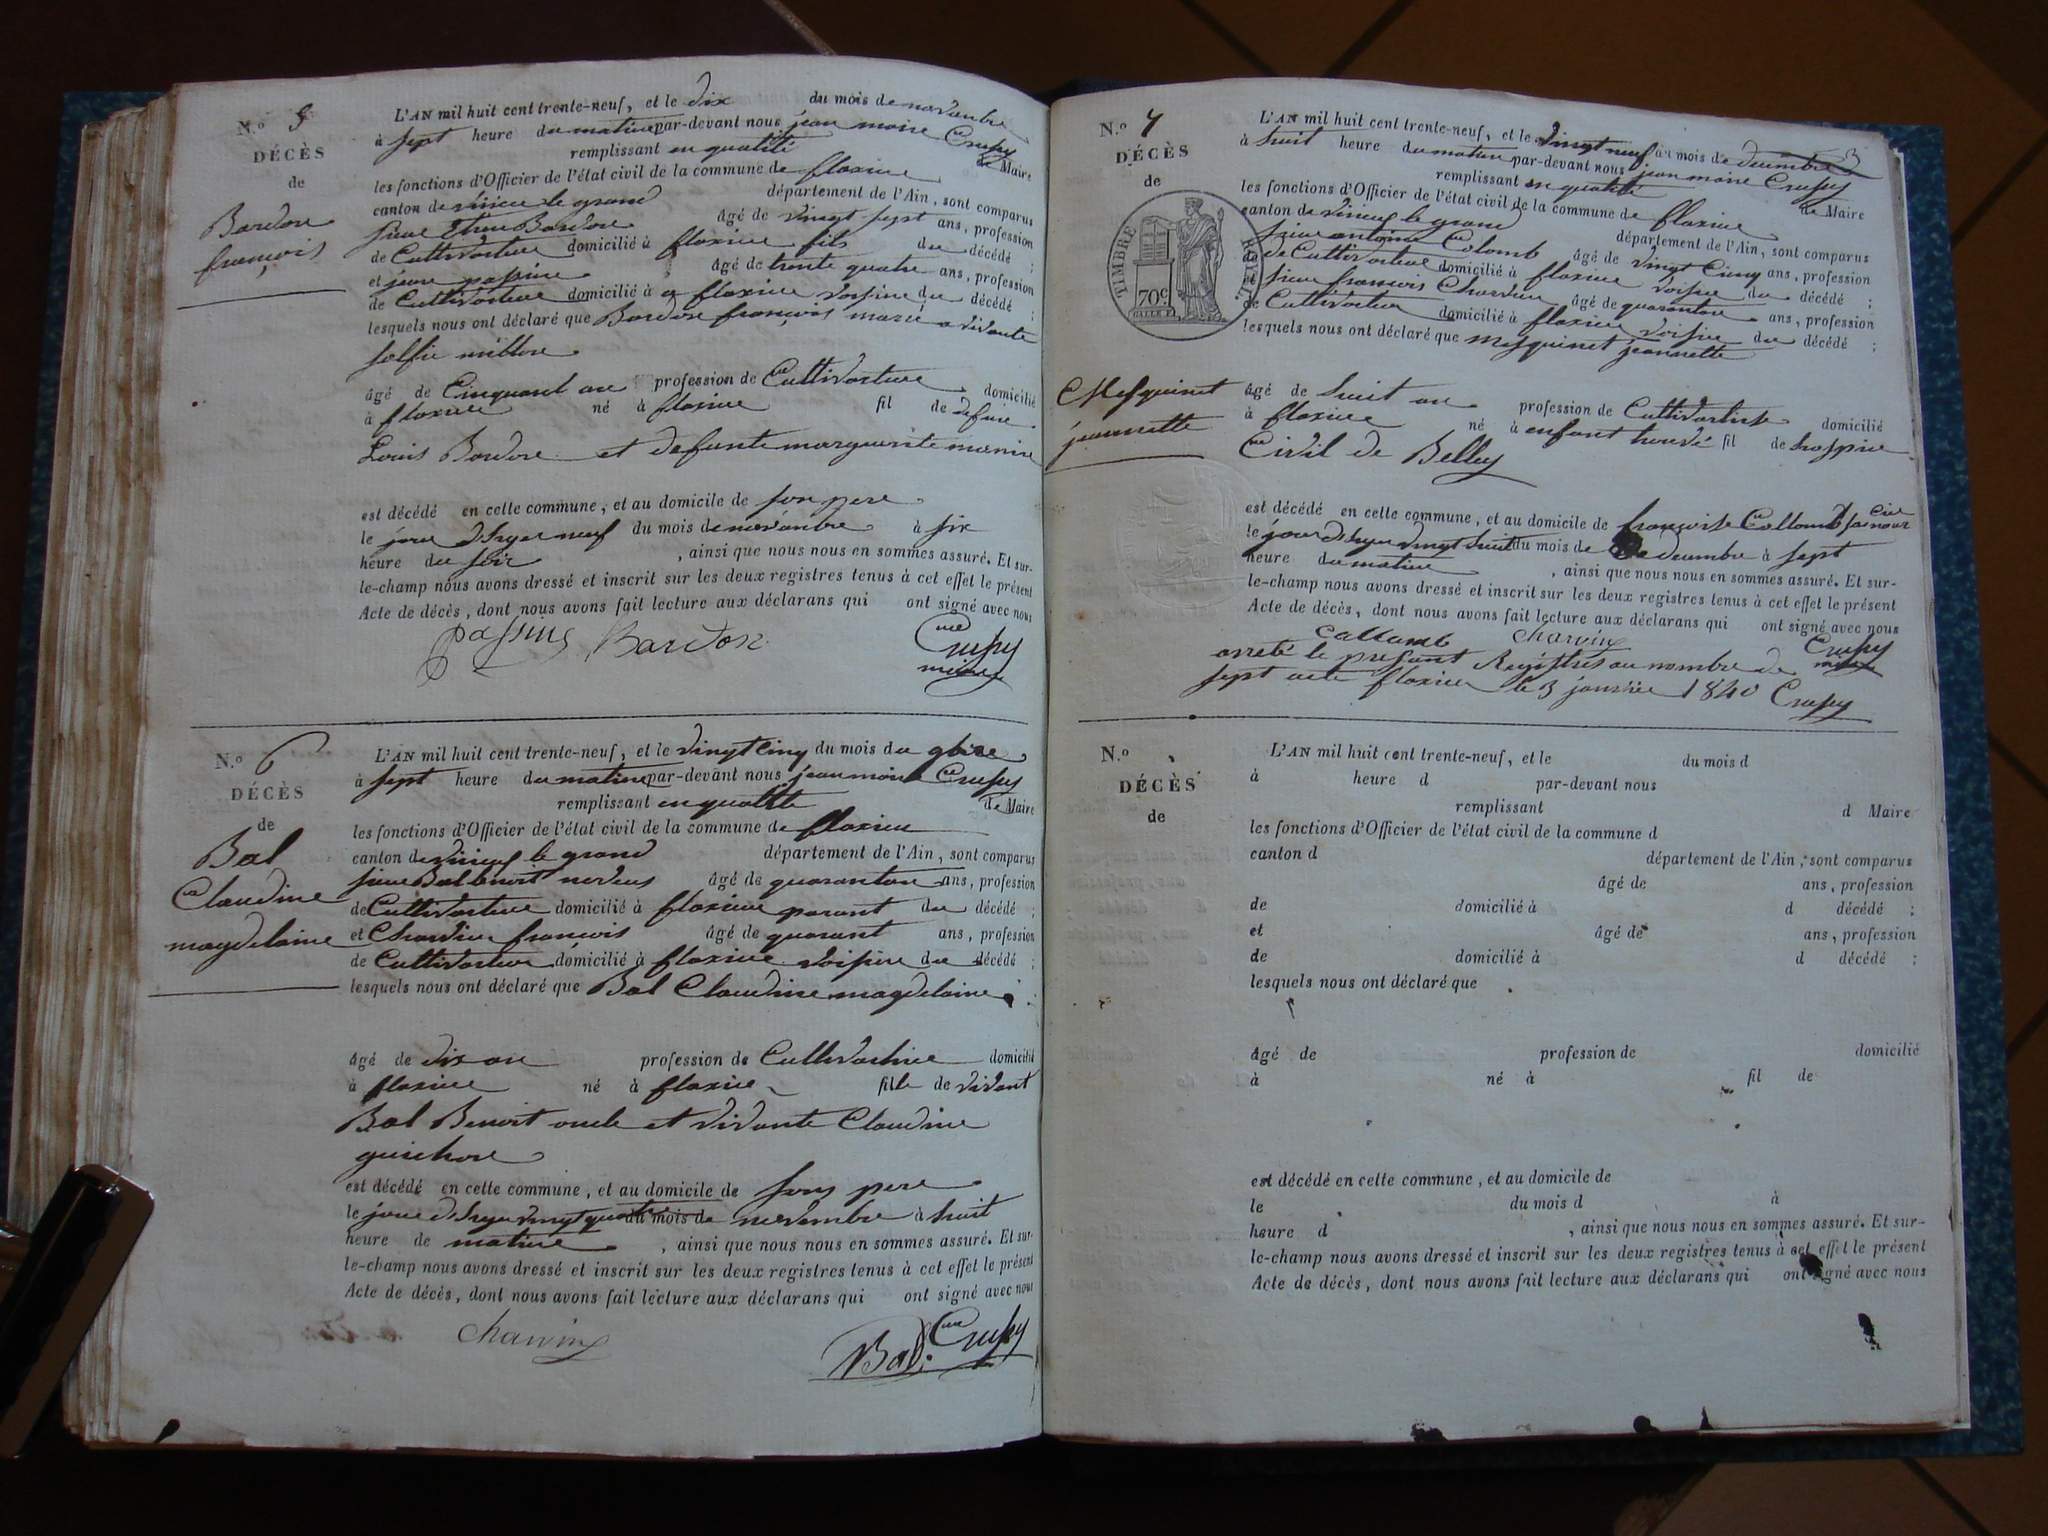 N.º 5
DÉCÈS
de
Bardon
françois
L'AN mil huit cent trente-neuf, et le dix du mois de novanbre
à sept heure du matine par-devant nous jean moire Crussy
remplissant en qualité de Maire
les fonctions d'Officier de l'état civil de la commune de flaxieu
canton de virieu le grand département de l'Ain, sont comparus
sieur Bardon âgé de vingt sept ans, profession
de Cultivateur domicilié à flaxieu fils du décédé ;
et jean passine âgé de trente quatre ans, profession
de Cultivateur domicilié à flaxieu voisine du décédé ;
lesquels nous ont déclaré que Bardon françois marie a vivante
âgé de Cinquant an profession de Cultivateur domicilié
à flaxieu né à flaxieu fil de
Louis Bardon et defunte marguerite
est décédé en cette commune, et au domicile de son pere
le jour d'hyer neuf du mois de novanbre à six
heure du soir , ainsi que nous nous en sommes assuré. Et sur-
le-champ nous avons dressé et inscrit sur les deux registres tenus à cet effet le présent
Acte de décès, dont nous avons fait lecture aux déclarans qui ont signé avec nous
passing Bardon Crussy
maire
N.º 6
DÉCÈS
de
Bal
Claudine
magdelaine
L'AN mil huit cent trente-neuf, et le vingt cinq du mois du 9bre
à sept heure du matine par-devant nous jean moire Crussy
remplissant en qualité de Maire
les fonctions d'Officier de l'état civil de la commune de flaxieu
canton de virieu le grand département de l'Ain, sont comparus
sieur Bal benoit neveus âgé de quarantan ans, profession
de Cultivateur domicilié à flaxieu parant du décédé ;
et Charvin françois âgé de quarant ans, profession
de Cultivateur domicilié à flaxieu voisine du décédé ;
lesquels nous ont déclaré que Bal Claudine magdelaine
âgé de dix an profession de Cultivatrice domicilié
à flaxieu né à flaxieu fille de vivant
Bal Benoit oncle et vivante Claudine
guichon
est décédé en cette commune, et au domicile de sons pere
le jour d'hyer vingt quatre du mois de novembre à huit
heure de matine , ainsi que nous nous en sommes assuré. Et sur-
le-champ nous avons dressé et inscrit sur les deux registres tenus à cet effet le présent
Acte de décès, dont nous avons fait lecture aux déclarans qui ont signé avec nous
charvin Bal Crussy
N.º 7
DÉCÈS
de
TIMBRE ROYAL
70 c.
Mesquinet
jeannette
L'AN mil huit cent trente-neuf, et le vingt neuf du mois de decembre
à huit heure du matine par-devant nous jean moire Crussy
remplissant en qualité de Maire
les fonctions d'Officier de l'état civil de la commune de flaxieu
canton de virieu le grand département de l'Ain, sont comparus
sieur antoine Colomb âgé de vingt Cinq ans, profession
de Cultivateur domicilié à flaxieu voisin du décédé ;
sieur françois Charvin âgé de quarantan ans, profession
de Cultivateur domicilié à flaxieu voisin du décédé ;
lesquels nous ont déclaré que mesquinet jeannette
âgé de huit an profession de domicilié
à flaxieu né à enfant trouvé fil de hospice
Civil de Belley
est décédé en cette commune, et au domicile de françoise Collomb
le jour d'hyer vingt huit du mois de decembre à sept
heure du matine , ainsi que nous nous en sommes assuré. Et sur-
le-champ nous avons dressé et inscrit sur les deux registres tenus à cet effet le présent
Acte de décès, dont nous avons fait lecture aux déclarans qui ont signé avec nous
collomb charvin Crussy
maire
arreté le present Registres au nombre de
sept acte flaxieu le 3 janvier 1840 Crussy
N.º
DÉCÈS
de
L'AN mil huit cent trente-neuf, et le du mois d
à heure d par-devant nous
remplissant d Maire
les fonctions d'Officier de l'état civil de la commune d
canton d département de l'Ain, sont comparus
âgé de ans, profession
de domicilié à d décédé ;
et âgé de ans, profession
de domicilié à d décédé ;
lesquels nous ont déclaré que
âgé de profession de domicilié
à né à fil de
est décédé en cette commune, et au domicile de
le du mois d à
heure d , ainsi que nous nous en sommes assuré. Et sur-
le-champ nous avons dressé et inscrit sur les deux registres tenus à cet effet le présent
Acte de décès, dont nous avons fait lecture aux déclarans qui ont signé avec nous